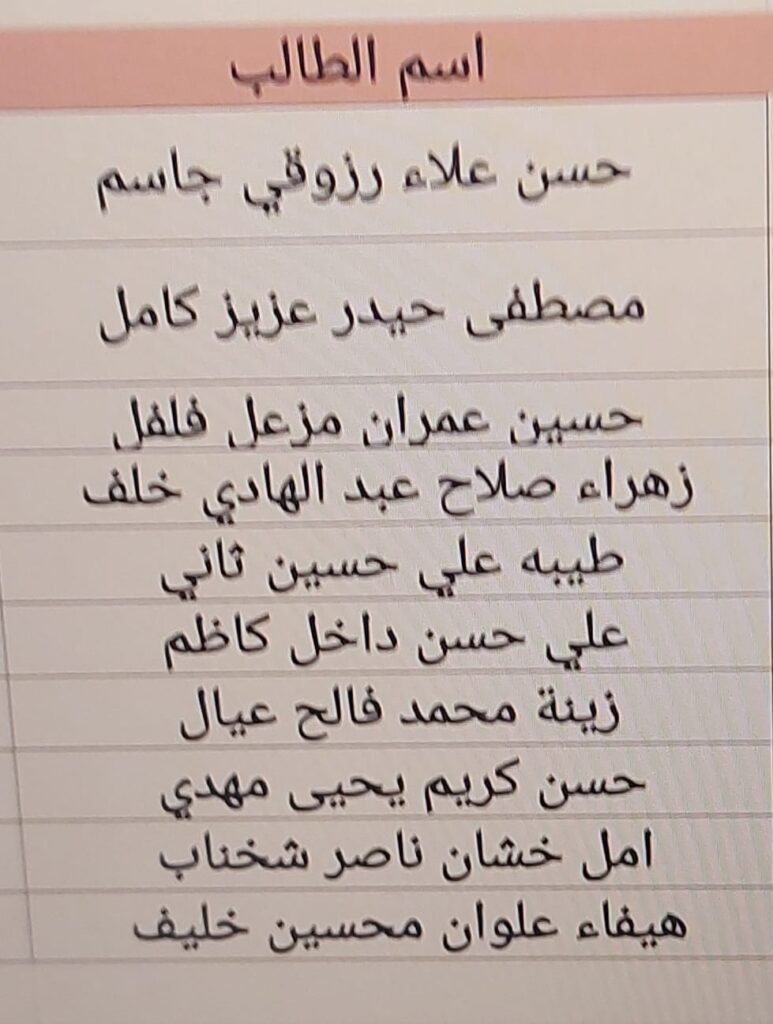 اسم الطالب
حسن علاء رزوقي جاسم
مصطفى حيدر عزيز كامل
حسين عمران مزعل فلفل
زهراء صلاح عبد الهادي خلف
طيبه علي حسين ثاني
علي حسن داخل كاظم
زينة محمد فالح عيال
حسن كريم يحيى مهدي
امل خشان ناصر شخناب
هيفاء علوان محسين خليف